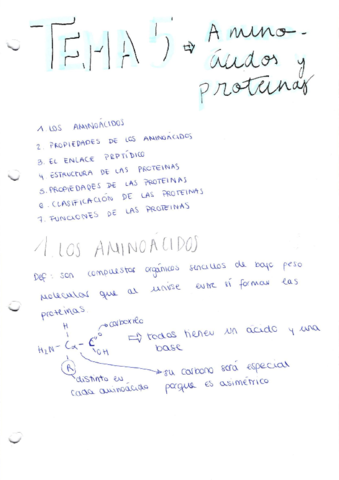 TEMA 5 ⇒ Amino-
ácidos y
proteinas
1. LOS AMINOÁCIDOS
2. PROPIEDADES DE LOS AMINOÁCIDOS
3. EL ENLACE PEPTÍDICO
4. ESTRUCTURA DE LAS PROTEINAS
5. PROPIEDADES DE LAS PROTEINAS
6. CLASIFICACIÓN DE LAS PROTEINAS
7. FUNCIONES DE LAS PROTEINAS
1. LOS AMINOÁCIDOS
Def: son compuestos orgánicos sencillos de bajo peso
molecular que al unirse entre sí forman las
proteinas
H
H2N - Cα - C
O
OH
R
carboxilo
⇒ todos tienen un ácido y una
base
distinto en
cada aminoácido
su carbono será especial
porque es asimétrico